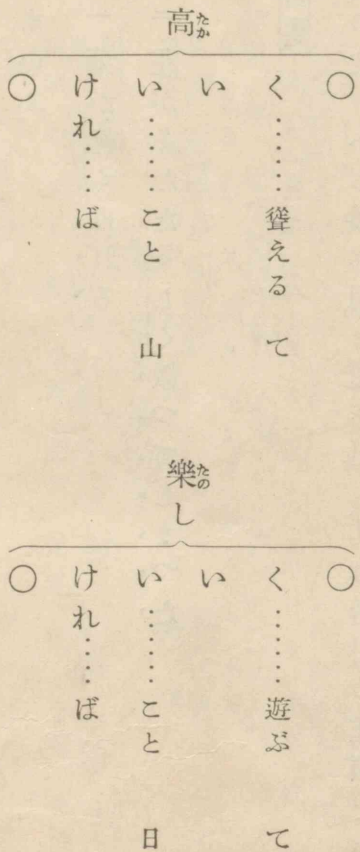 高たか
○
く‥‥‥聳える て
い
い‥‥‥こと 山
けれ‥‥ば
○
樂たのし
○
く‥‥‥遊ぶ て
い
い‥‥‥こと 日
けれ‥‥ば
○